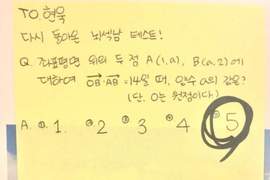 TO.현욱
다시 돌아온 뇌섹남 테스트!
Q. 좌표평면 위의 두 점 A(1,a), B(a,2)에
대하여 OB·AB=14일 때, 양수 a의 값은?
(단, O는 원점이다)
A. ① 1. ② 2 ③ 3 ④ 4 ⑤ 5